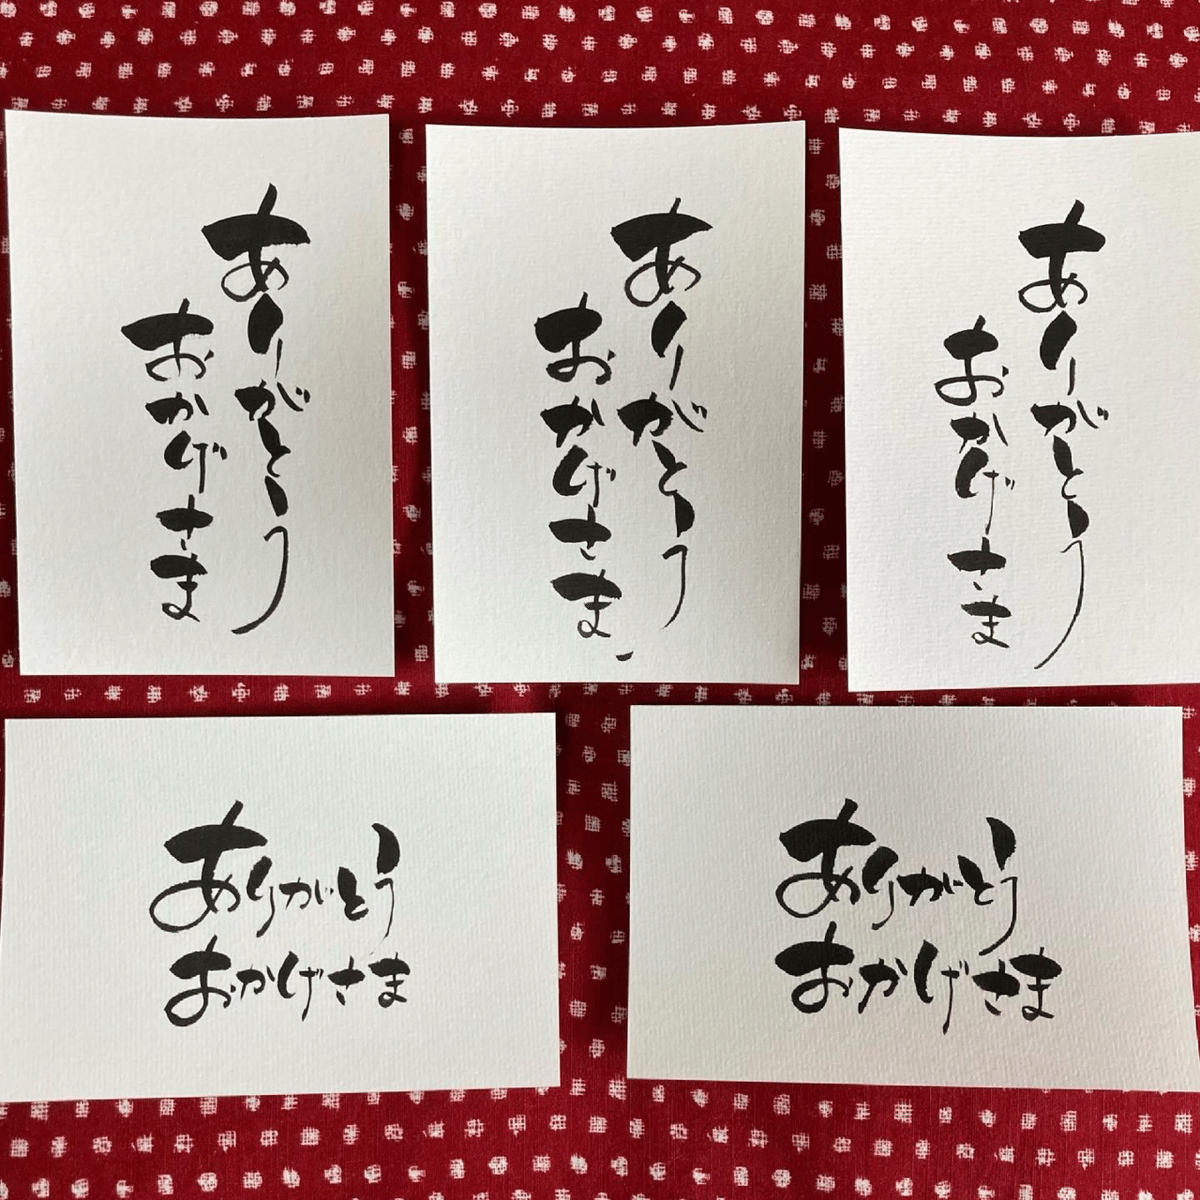 ありがとう
おかげさま
ありがとう
おかげさま
ありがとう
おかげさま
ありがとう
おかげさま
ありがとう
おかげさま